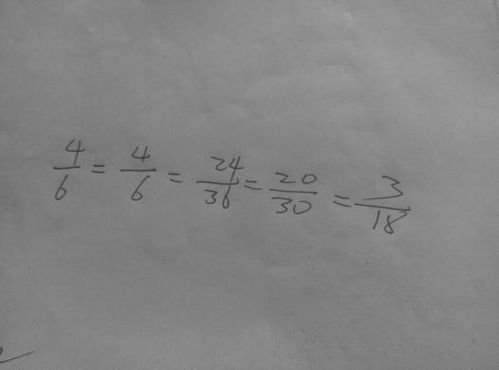 4/6 = 4/6 = 24/36 = 20/30 = 3/18